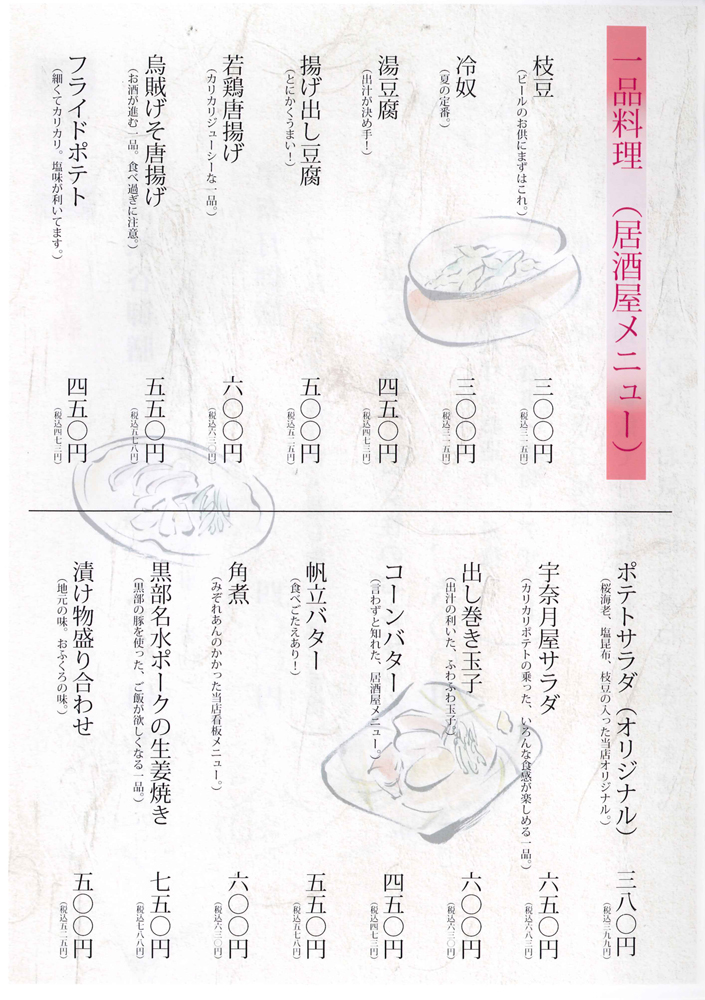 一品料理 （居酒屋メニュー）
枝豆
（ビールのお供にまずはこれ。）
三〇〇円
（税込三一五円）
冷奴
（夏の定番。）
三〇〇円
（税込三一五円）
湯豆腐
（出汁が決め手！）
四五〇円
（税込四七三円）
揚げ出し豆腐
（とにかくうまい！）
五〇〇円
（税込五二五円）
若鶏唐揚げ
（カリカリジューシーな一品。）
六〇〇円
（税込六三〇円）
烏賊げそ唐揚げ
（お酒が進む一品。食べ過ぎに注意。）
五五〇円
（税込五七八円）
フライドポテト
（細くてカリカリ。塩味が利いてます。）
四五〇円
（税込四七三円）
ポテトサラダ（オリジナル）
（桜海老、塩昆布、枝豆の入った当店オリジナル。）
三八〇円
（税込三九九円）
宇奈月屋サラダ
（カリカリポテトの乗った、いろんな食感が楽しめる一品。）
六五〇円
（税込六八三円）
出し巻き玉子
（出汁の利いた、ふわふわ玉子。）
六〇〇円
（税込六三〇円）
コーンバター
（言わずと知れた、居酒屋メニュー。）
四五〇円
（税込四七三円）
帆立バター
（食べごたえあり！）
五五〇円
（税込五七八円）
角煮
（みぞれあんのかかった当店看板メニュー。）
六〇〇円
（税込六三〇円）
黒部名水ポークの生姜焼き
（黒部の豚を使った、ご飯が欲しくなる一品。）
七五〇円
（税込七八八円）
漬け物盛り合わせ
（地元の味。おふくろの味。）
五〇〇円
（税込五二五円）